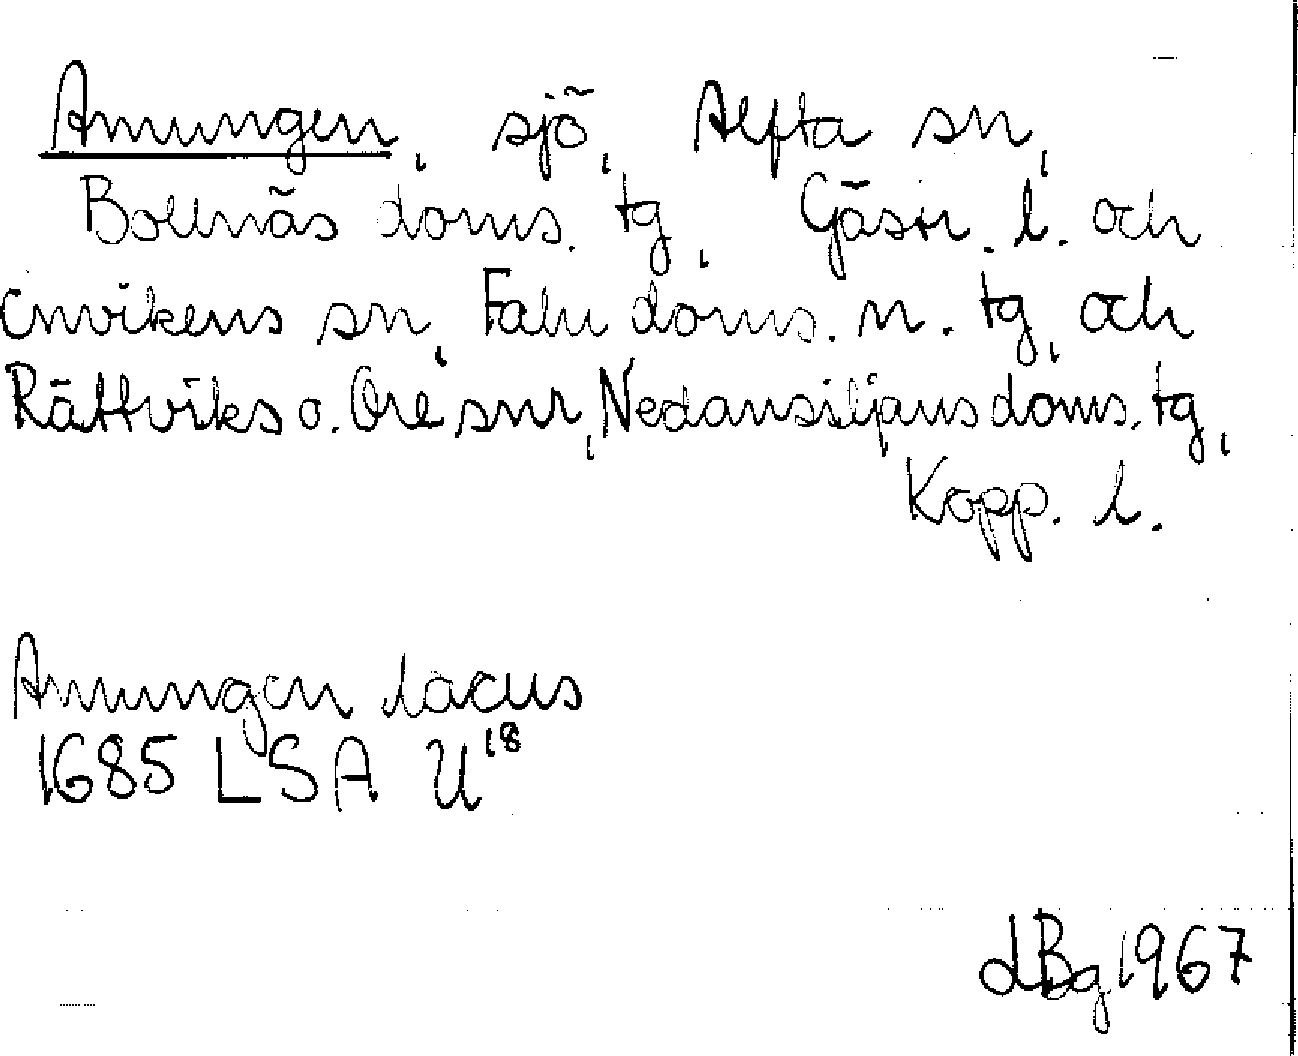 Amungen, sjö, Alfta sn,
Bollnäs doms. tg, Gästr. l. och
Envikens sn, Falu doms. n. tg, och
Rättviks o. Ore snr, Nedansiljans doms. tg,
Kopp. l.
Amungen lacus
1685 LSA U18
LBg 1967